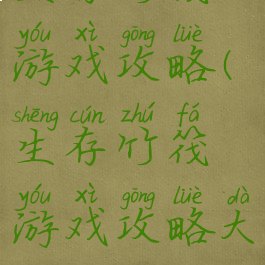 yóu xì gōng lüè
游戏攻略(
shēng cún zhú fá
生存竹筏
yóu xì gōng lüè dà
游戏攻略大